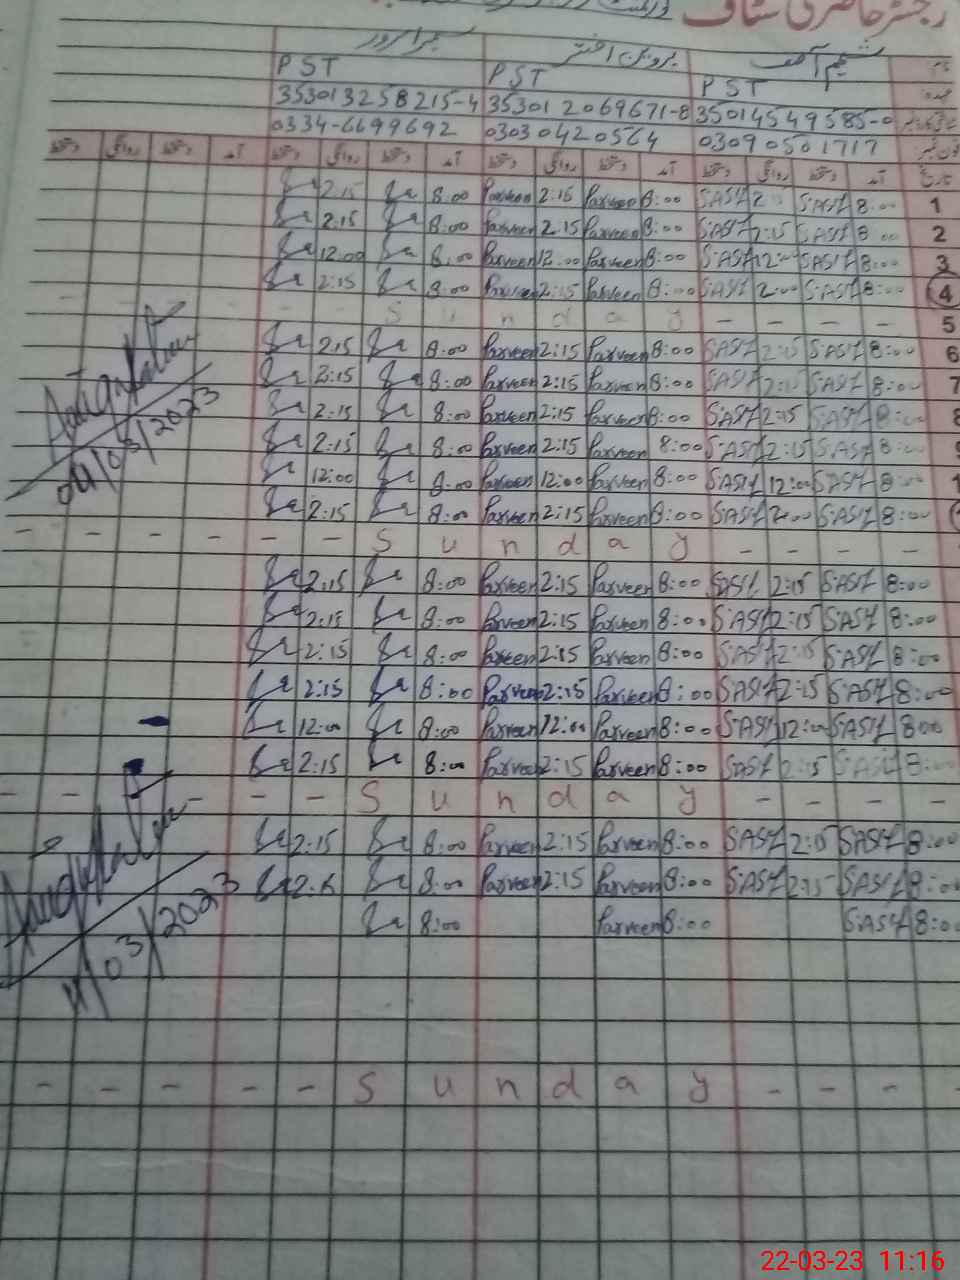 رجسٹر حاضری سٹاف
شمیم آصف پروین اختر
PST PST PST
353013258215-4 353012069671-8 350145495 85-0
0334-6699692 03030420564 03090501717
2:15 8:00 Parveen 2:15 Parveen 8:00 S.ASIF 2 S.ASIF 8:00 1
2:15 8:00 Parveen 2:15 Parveen 8:00 S.ASIF 2:15 S.ASIF 8:00 2
12:00 8:00 Parveen 12:00 Parveen 8:00 S.ASIF 12:00 S.ASIF 8:00 3
2:15 8:00 Parveen 2:15 Parveen 8:00 S.ASIF 2:00 S.ASIF 8:00 4
- - - S u n d a y - - - - 5
2:15 8:00 Parveen 2:15 Parveen 8:00 S.ASIF 2:15 S.ASIF 8:00 6
2:15 8:00 Parveen 2:15 Parveen 8:00 S.ASIF 2:15 S.ASIF 8:00 7
2:15 8:00 Parveen 2:15 Parveen 8:00 S.ASIF 2:15 S.ASIF 8:00 8
2:15 8:00 Parveen 2:15 Parveen 8:00 S.ASIF 2:15 S.ASIF 8:00
04/03/2023
12:00 8:00 Parveen 12:00 Parveen 8:00 S.ASIF 12:00 S.ASIF 8:00 1
2:15 8:00 Parveen 2:15 Parveen 8:00 S.ASIF 2:00 S.ASIF 8:00
- - - - - - S u n d a y - - - -
2:15 8:00 Parveen 2:15 Parveen 8:00 S.ASIF 2:15 S.ASIF 8:00
2:15 8:00 Parveen 2:15 Parveen 8:00 S.ASIF 2:15 S.ASIF 8:00
2:15 8:00 Parveen 2:15 Parveen 8:00 S.ASIF 2:15 S.ASIF 8:00
2:15 8:00 Parveen 2:15 Parveen 8:00 S.ASIF 2:15 S.ASIF 8:00
12:00 8:00 Parveen 12:00 Parveen 8:00 S.ASIF 12:00 S.ASIF 8:00
2:15 8:00 Parveen 2:15 Parveen 8:00 S.ASIF 2:15 S.ASIF 8:00
- - - - - - S u n d a y - - - -
2:15 8:00 Parveen 2:15 Parveen 8:00 S.ASIF 2:15 S.ASIF 8:00
2:15 8:00 Parveen 2:15 Parveen 8:00 S.ASIF 2:15 S.ASIF 8:00
8:00 Parveen 8:00 S.ASIF 8:00
11/03/2023
- - - - - S u n d a y - - - -
22-03-23 11:16